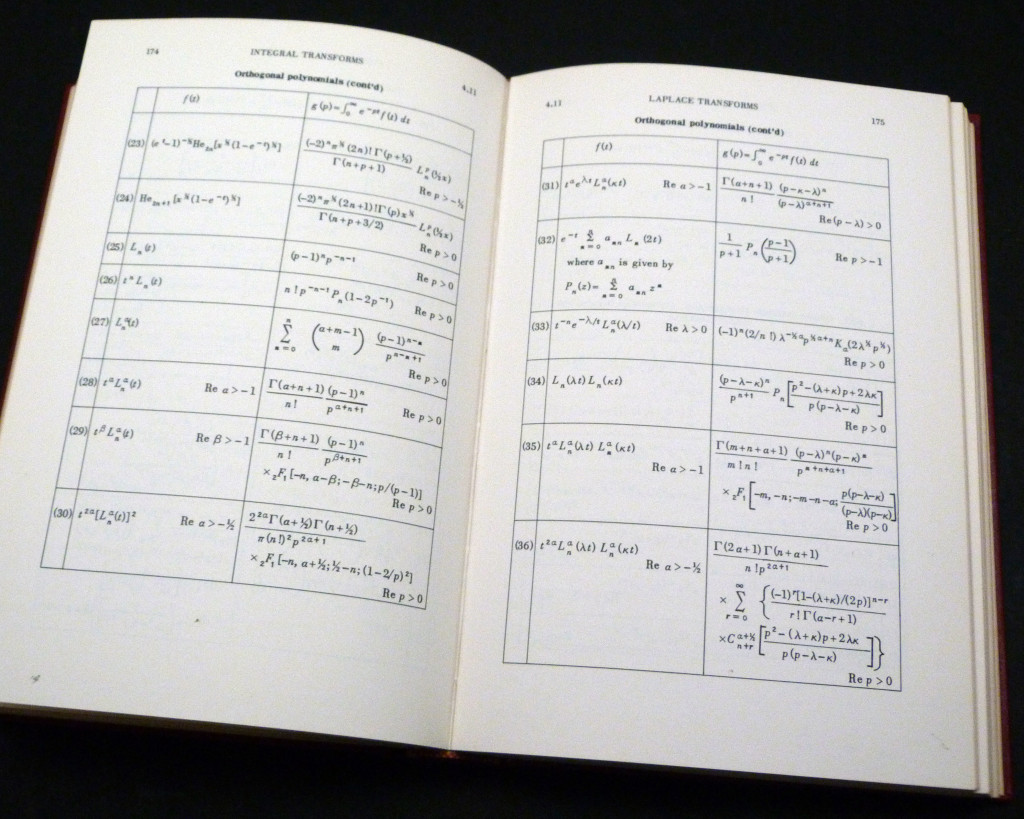 174
INTEGRAL TRANSFORMS
Orthogonal polynomials (cont'd)
4.11
f(t)
g(p)=∫₀^∞ e^{-pt} f(t) dt
(23) (e^t−1)^{-½} He_{2n}[x^½(1−e^{-t})^½]
(−2)^n π^½ (2n)! Γ(p+½) / Γ(n+p+1) L_n^p(½x)
Re p > −½
(24) He_{2n+1}[x^½(1−e^{-t})^½]
(−2)^n π^½ (2n+1)! Γ(p) x^½ / Γ(n+p+3/2) L_n^p(½x)
Re p > 0
(25) L_n(t)
(p−1)^n p^{-n-1}
Re p > 0
(26) t^n L_n(t)
n! p^{-n-1} P_n(1−2p^{-1})
Re p > 0
(27) L_n^α(t)
∑_{m=0}^{n} (α+m−1 m) (p−1)^{n-m} / p^{n-m+1}
Re p > 0
(28) t^α L_n^α(t) Re α > −1
Γ(α+n+1) / n! (p−1)^n / p^{α+n+1}
Re p > 0
(29) t^β L_n^α(t) Re β > −1
Γ(β+n+1) / n! (p−1)^n / p^{β+n+1}
× ₂F₁[−n, α−β; −β−n; p/(p−1)]
Re p > 0
(30) t^{2α}[L_n^α(t)]² Re α > −½
2^{2α} Γ(α+½) Γ(n+½) / π(n!)² p^{2α+1}
× ₂F₁[−n, α+½; ½−n; (1−2/p)²]
Re p > 0
4.11
LAPLACE TRANSFORMS
175
Orthogonal polynomials (cont'd)
f(t)
g(p)=∫₀^∞ e^{-pt} f(t) dt
(31) t^α e^{λt} L_n^α(κt) Re α > −1
Γ(α+n+1) / n! (p−κ−λ)^n / (p−λ)^{α+n+1}
Re(p−λ) > 0
(32) e^{-t} ∑_{m=0}^{n} a_{mn} L_m(2t)
where a_{mn} is given by
P_n(z)= ∑_{m=0}^{n} a_{mn} z^m
1 / p+1 P_n(p−1 / p+1) Re p > −1
(33) t^{-n} e^{-λ/t} L_n^α(λ/t) Re λ > 0
(−1)^n (2/n!) λ^{-½α} p^{½α+n} K_α(2λ^½ p^½)
Re p > 0
(34) L_n(λt) L_n(κt)
(p−λ−κ)^n / p^{n+1} P_n[p²−(λ+κ)p+2λκ / p(p−λ−κ)]
Re p > 0
(35) t^α L_n^α(λt) L_m^α(κt)
Re α > −1
Γ(m+n+α+1) / m! n! (p−λ)^n (p−κ)^m / p^{m+n+α+1}
× ₂F₁[−m, −n; −m−n−α; p(p−λ−κ) / (p−λ)(p−κ)]
Re p > 0
(36) t^{2α} L_n^α(λt) L_n^α(κt)
Re α > −½
Γ(2α+1) Γ(n+α+1) / n! p^{2α+1}
× ∑_{r=0}^{∞} {(−1)^r [1−(λ+κ)/(2p)]^{n-r} / r! Γ(α−r+1)
× C_{n+r}^{α+½} [p²−(λ+κ)p+2λκ / p(p−λ−κ)]}
Re p > 0